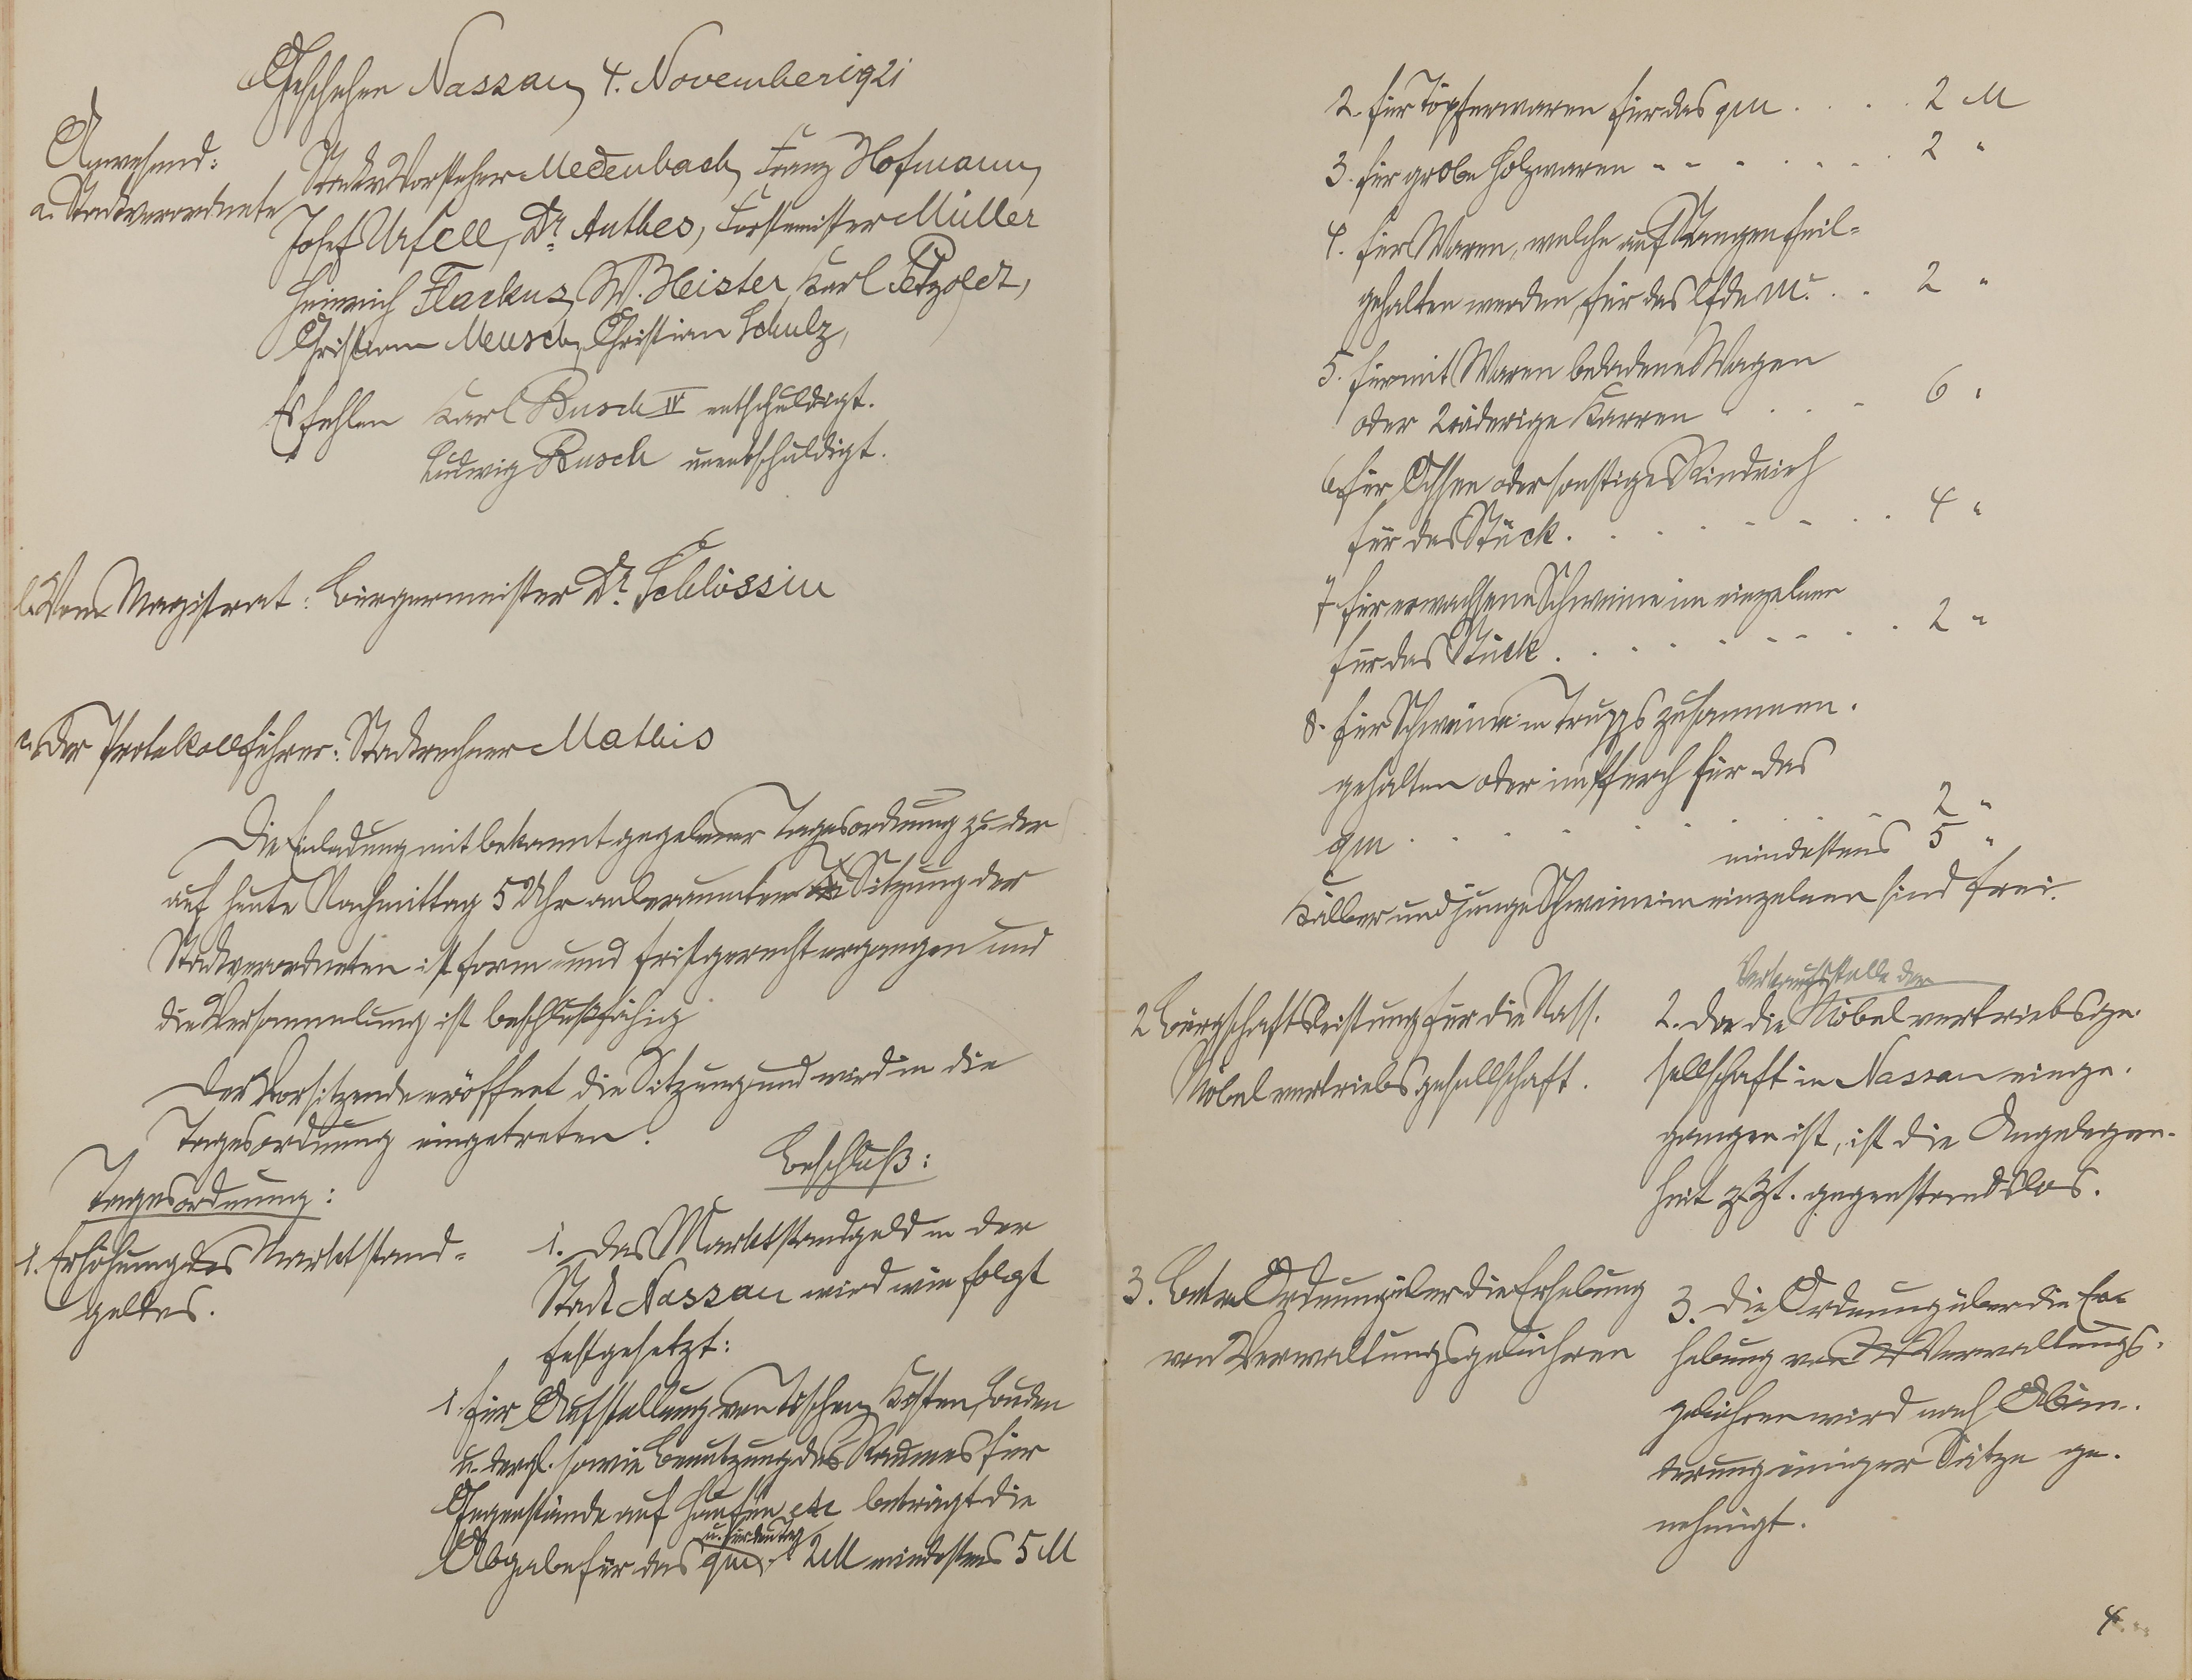 Geschehen Nassau, 4. November 1921
Anwesend:
a. Stadtverordnete
Stadtv. Vorsteher Medenbach, Franz Hofmann,
Josef Ursell, Dr. Anthes, Forstmeister Müller
Heinrich Flackus, W. Heister, Karl Petzoldt,
Christian Meusch, Christian Schulz,
Es fehlen Karl Busch IV entschuldigt.
Ludwig Busch unentschuldigt.
b. Vom Magistrat: Bürgermeister Dr. Schlössin
c. Der Protokollführer: Stadtrechner Mathis
Die Einladung mit bekannt gegebener Tagesordnung zu der
auf heute Nachmittag 5 Uhr anberaumten Sitzung der
Stadtverordneten ist form- und fristgerecht ergangen und
die Versammlung ist beschlußfähig
Der Vorsitzende eröffnet die Sitzung und wird in die
Tagesordnung eingetreten.
Tagesordnung:
Beschluß:
1. Erhöhung des Marktstand-
geldes.
1. Das Marktstandgeld in der
Stadt Nassau wird wie folgt
festgesetzt:
1. für Aufstellung von Tischen, Kasten, Buden
u. dergl. sowie Benutzung des Raumes für
Gegenstände auf Haufen etc beträgt die
u. für den Tag
Abgabe für das qm 2 M mindestens 5 M
2. für Töpferwaren für das qm . . . . 2 M
3. für grobe Holzwaren - - - . . . . 2 "
4. für Waren, welche auf Stangen feil-
gehalten werden, für das lfde M. . . 2 "
5. für mit Waren beladene Wagen
oder 2räderige Karren . . . - 6 "
6. für Ochsen oder sonstiges Rindvieh
für das Stück . . . . - - . . 4 "
7. für erwachsene Schweine im einzelnen
für das Stück . . . . . - - - . . 2 "
8. für Schweine in Trupps zusammen.
gehalten oder im Pferch für das
qm . . . . . . . . . 2 "
mindestens 5 "
Kälber und junge Schweine im einzelnen sind frei.
2 Bürgschaftsleistung für die Nass.
Möbelvertriebsgesellschaft.
Verkaufsstelle der
2. Da die Möbelvertriebsge-
sellschaft in Nassau einge-
gangen ist, ist die Angelegen-
heit z. Zt. gegenstandslos.
3. Betr. Ordnung über die Erhebung
von Verwaltungsgebühren
3. Die Ordnung über die Er-
hebung von Verwaltungs-
gebühren wird nach Abän-
derung einiger Sätze ge-
nehmigt.
4.